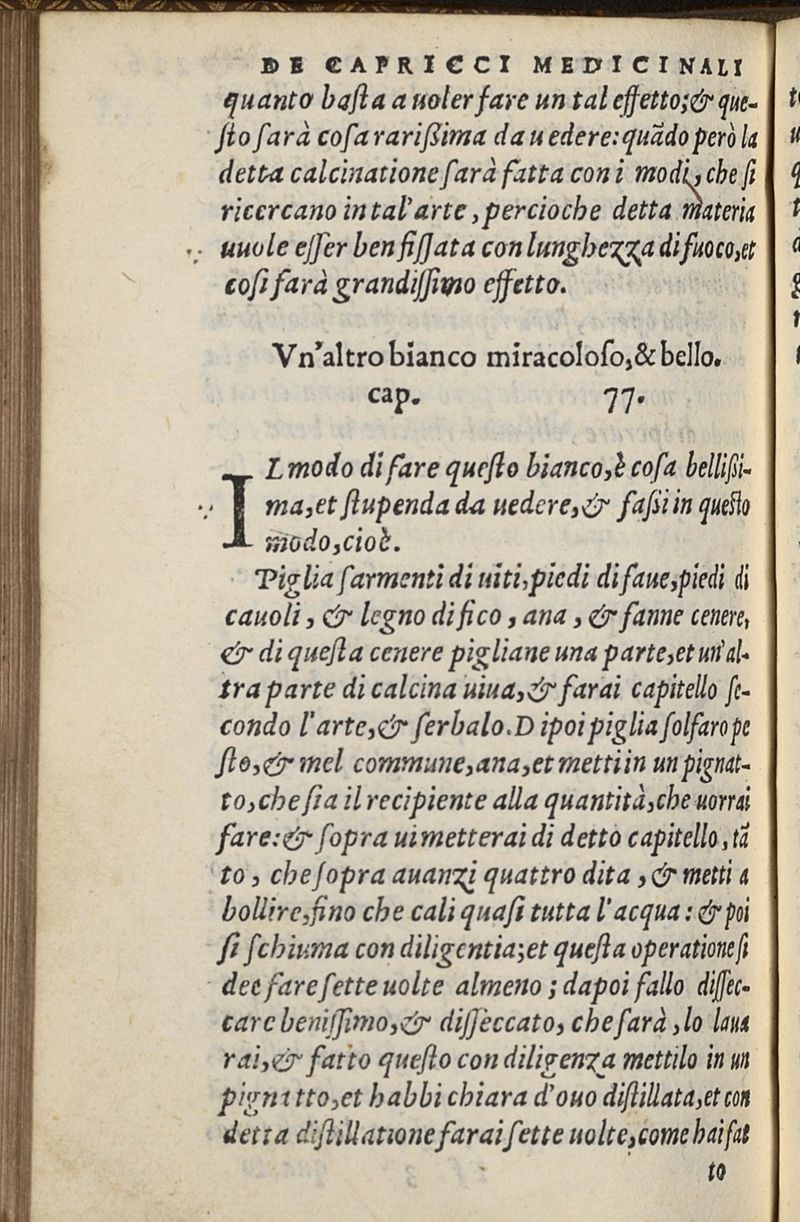 DE CAPRICCI MEDICINALI
quanto baſta a uoler fare un tal effetto;& que-
ſto ſarà coſa rarißima da uedere: quãdo però la
detta calcinatione ſarà fatta con i modi, che ſi
ricercano in tal'arte, percioche detta materia
uuole eſſer ben fiſſata con lunghezza di fuoco, et
coſi farà grandiſſimo effetto.
Vn'altro bianco miracoloſo, & bello.
cap. 77.
IL modo di fare queſto bianco, è coſa bellißi-
ma, et ſtupenda da uedere, & faßi in queſto
modo, cioè.
Piglia ſarmenti di uiti, piedi di faue, piedi di
cauoli, & legno di fico, ana, & fanne cenere,
& di queſta cenere pigliane una parte, et un'al-
tra parte di calcina uiua, & farai capitello ſe-
condo l'arte, & ſerbalo. Dipoi piglia ſolfaro pe
ſto, & mel commune, ana, et metti in un pignat-
to, che ſia il recipiente alla quantità, che uorrai
fare: & ſopra ui metterai di detto capitello, tã
to, che ſopra auanzi quattro dita, & metti a
bollire, fino che cali quaſi tutta l'acqua: & poi
ſi ſchiuma con diligentia; et queſta operatione ſi
dee fare ſette uolte almeno; dapoi fallo diſſec-
care beniſſimo, & diſſeccato, che ſarà, lo laua
rai, & fatto queſto con diligenza mettilo in un
pignatto, et habbi chiara d'ouo diſtillata, et con
detta diſtillatione farai ſette uolte, come hai fat
to